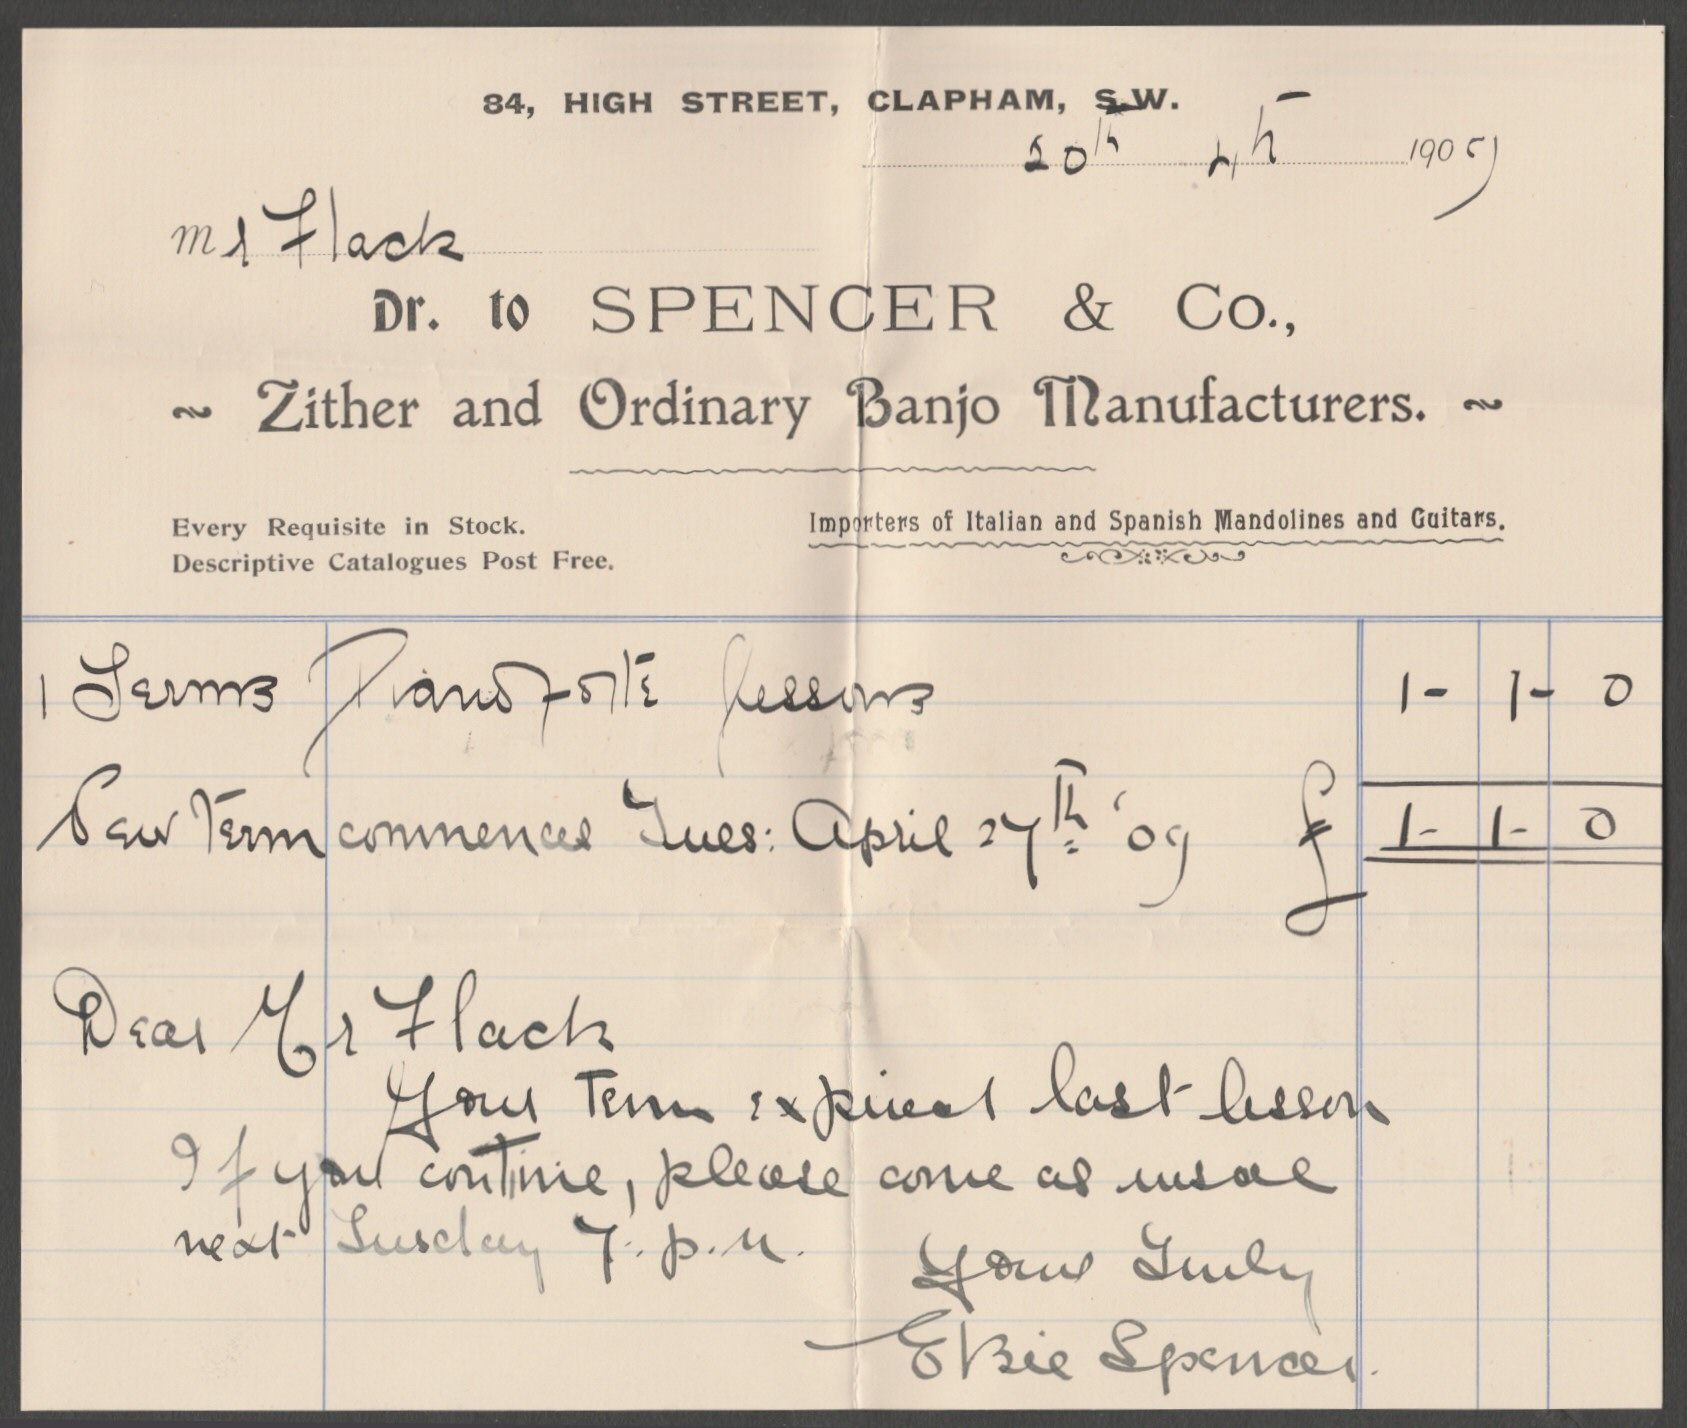 84, HIGH STREET, CLAPHAM, S.W.
20th 4th 1909
Mr Flack
Dr. to SPENCER & Co.,
~ Zither and Ordinary Banjo Manufacturers. ~
Every Requisite in Stock.
Importers of Italian and Spanish Mandolines and Guitars.
Descriptive Catalogues Post Free.
1 Terms Pianoforte Lessons 1-1-0
New Term commences Tues: April 27th '09 £ 1-1-0
Dear Mr Flack
Your Term expired last lesson
If you continue, please come as usual
next Tuesday 7. p.m.
Yours Truly
Elsie Spencer.